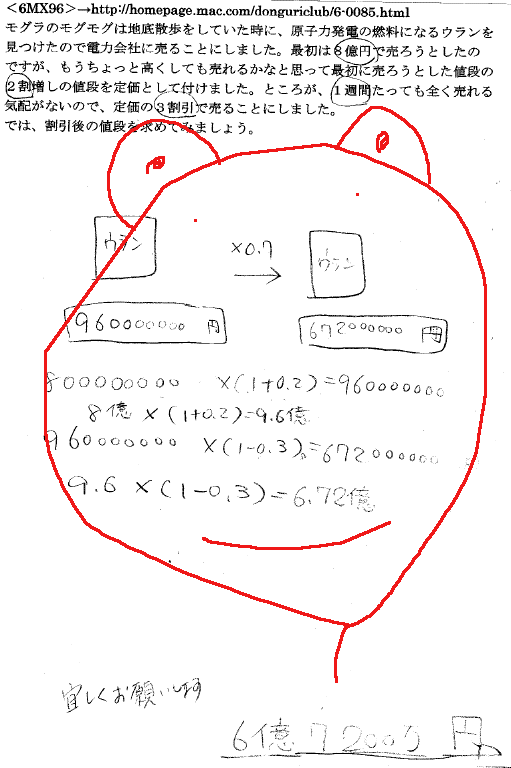 <6MX96>→http://homepage.mac.com/donguriclub/6-0085.html
モグラのモグモグは地底散歩をしていた時に、原子力発電の燃料になるウランを
見つけたので電力会社に売ることにしました。最初は8億円で売ろうとしたの
ですが、もうちょっと高くしても売れるかなと思って最初に売ろうとした値段の
2割増しの値段を定価として付けました。ところが、1週間たっても全く売れる
気配がないので、定価の3割引で売ることにしました。
では、割引後の値段を求めてみましょう。
ウラン ×0.7 ウラン
960000000 円 672000000 円
800000000 ×(1+0.2)=960000000
8億 ×(1+0.2)=9.6億
960000000 ×(1-0.3)=672000000
9.6 ×(1-0.3)=6.72億
宜しくお願いします
6億7200万 円